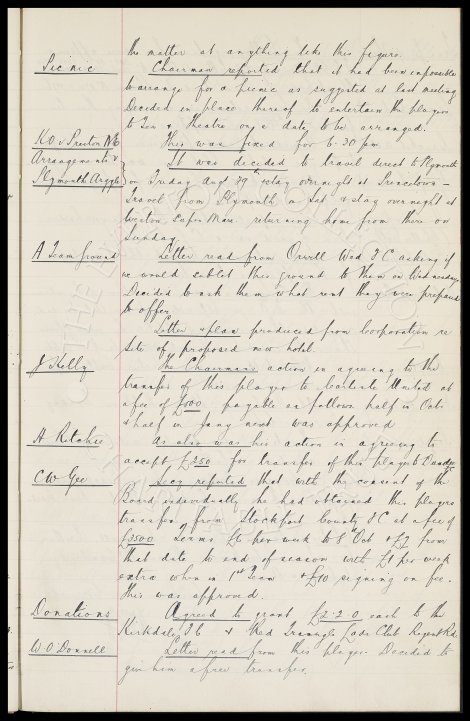 the matter at anything like this figure.
Picnic
Chairman reported that it had been impossible
to arrange for a picnic as suggested at last meeting
Decided in place thereof to entertain the players
to Tea & Theatre on a date to be arranged.
K.O. v Preston N.E.
This was fixed for 6.30 pm
Arrangements v
It was decided to travel direct to Plymouth
Plymouth Argyle
on Friday Augt 29th stay overnight at Princetown -
Travel from Plymouth on Sat & stay overnight at
Weston Super Mare returning home from there on
Sunday
A Team Ground
Letter read from Orwell Wed F C asking if
we would sublet this ground to them on Wednesdays
Decided to ask them what rent they were prepared
to offer.
Letter & plan produced from Corporation re
site of proposed new hotel.
J Kelly
The Chairmans action in agreeing to the
transfer of this player to Carlisle United at
a fee of payable as follows half in Oct
& half in Jany next was approved
A Ritchie
As also was his action in agreeing to
accept £250 for transfer of this player to Dundee
C W Gee
Secy reported that with the consent of the
Board individually he had obtained this players
transfer from Stockport County F C at a fee of
£3500 Terms £6 per week to 8th Oct & £7 from
that date to end of season with £1 per week
extra when in 1st Team & £10 signing on fee.
This was approved.
Donations
Agreed to grant £2-2-0 each to the
Kirkdale F C & Red Triangle Lads Club Regent Rd.
W O'Donnell
Letter read from this player. Decided to
give him a free transfer.